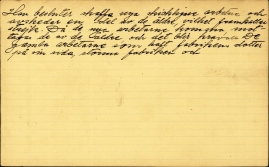 Han beslutar skaffa nya skickliga arbetare och
avskeda en del av de äldre, vilket framkallar
strejk. Då de nya arbetarna komma, mot-
tagas de av de äldre och det blir De
gamla arbetarna som haft fabrikens dotter
på sin sida, storma fabriken och